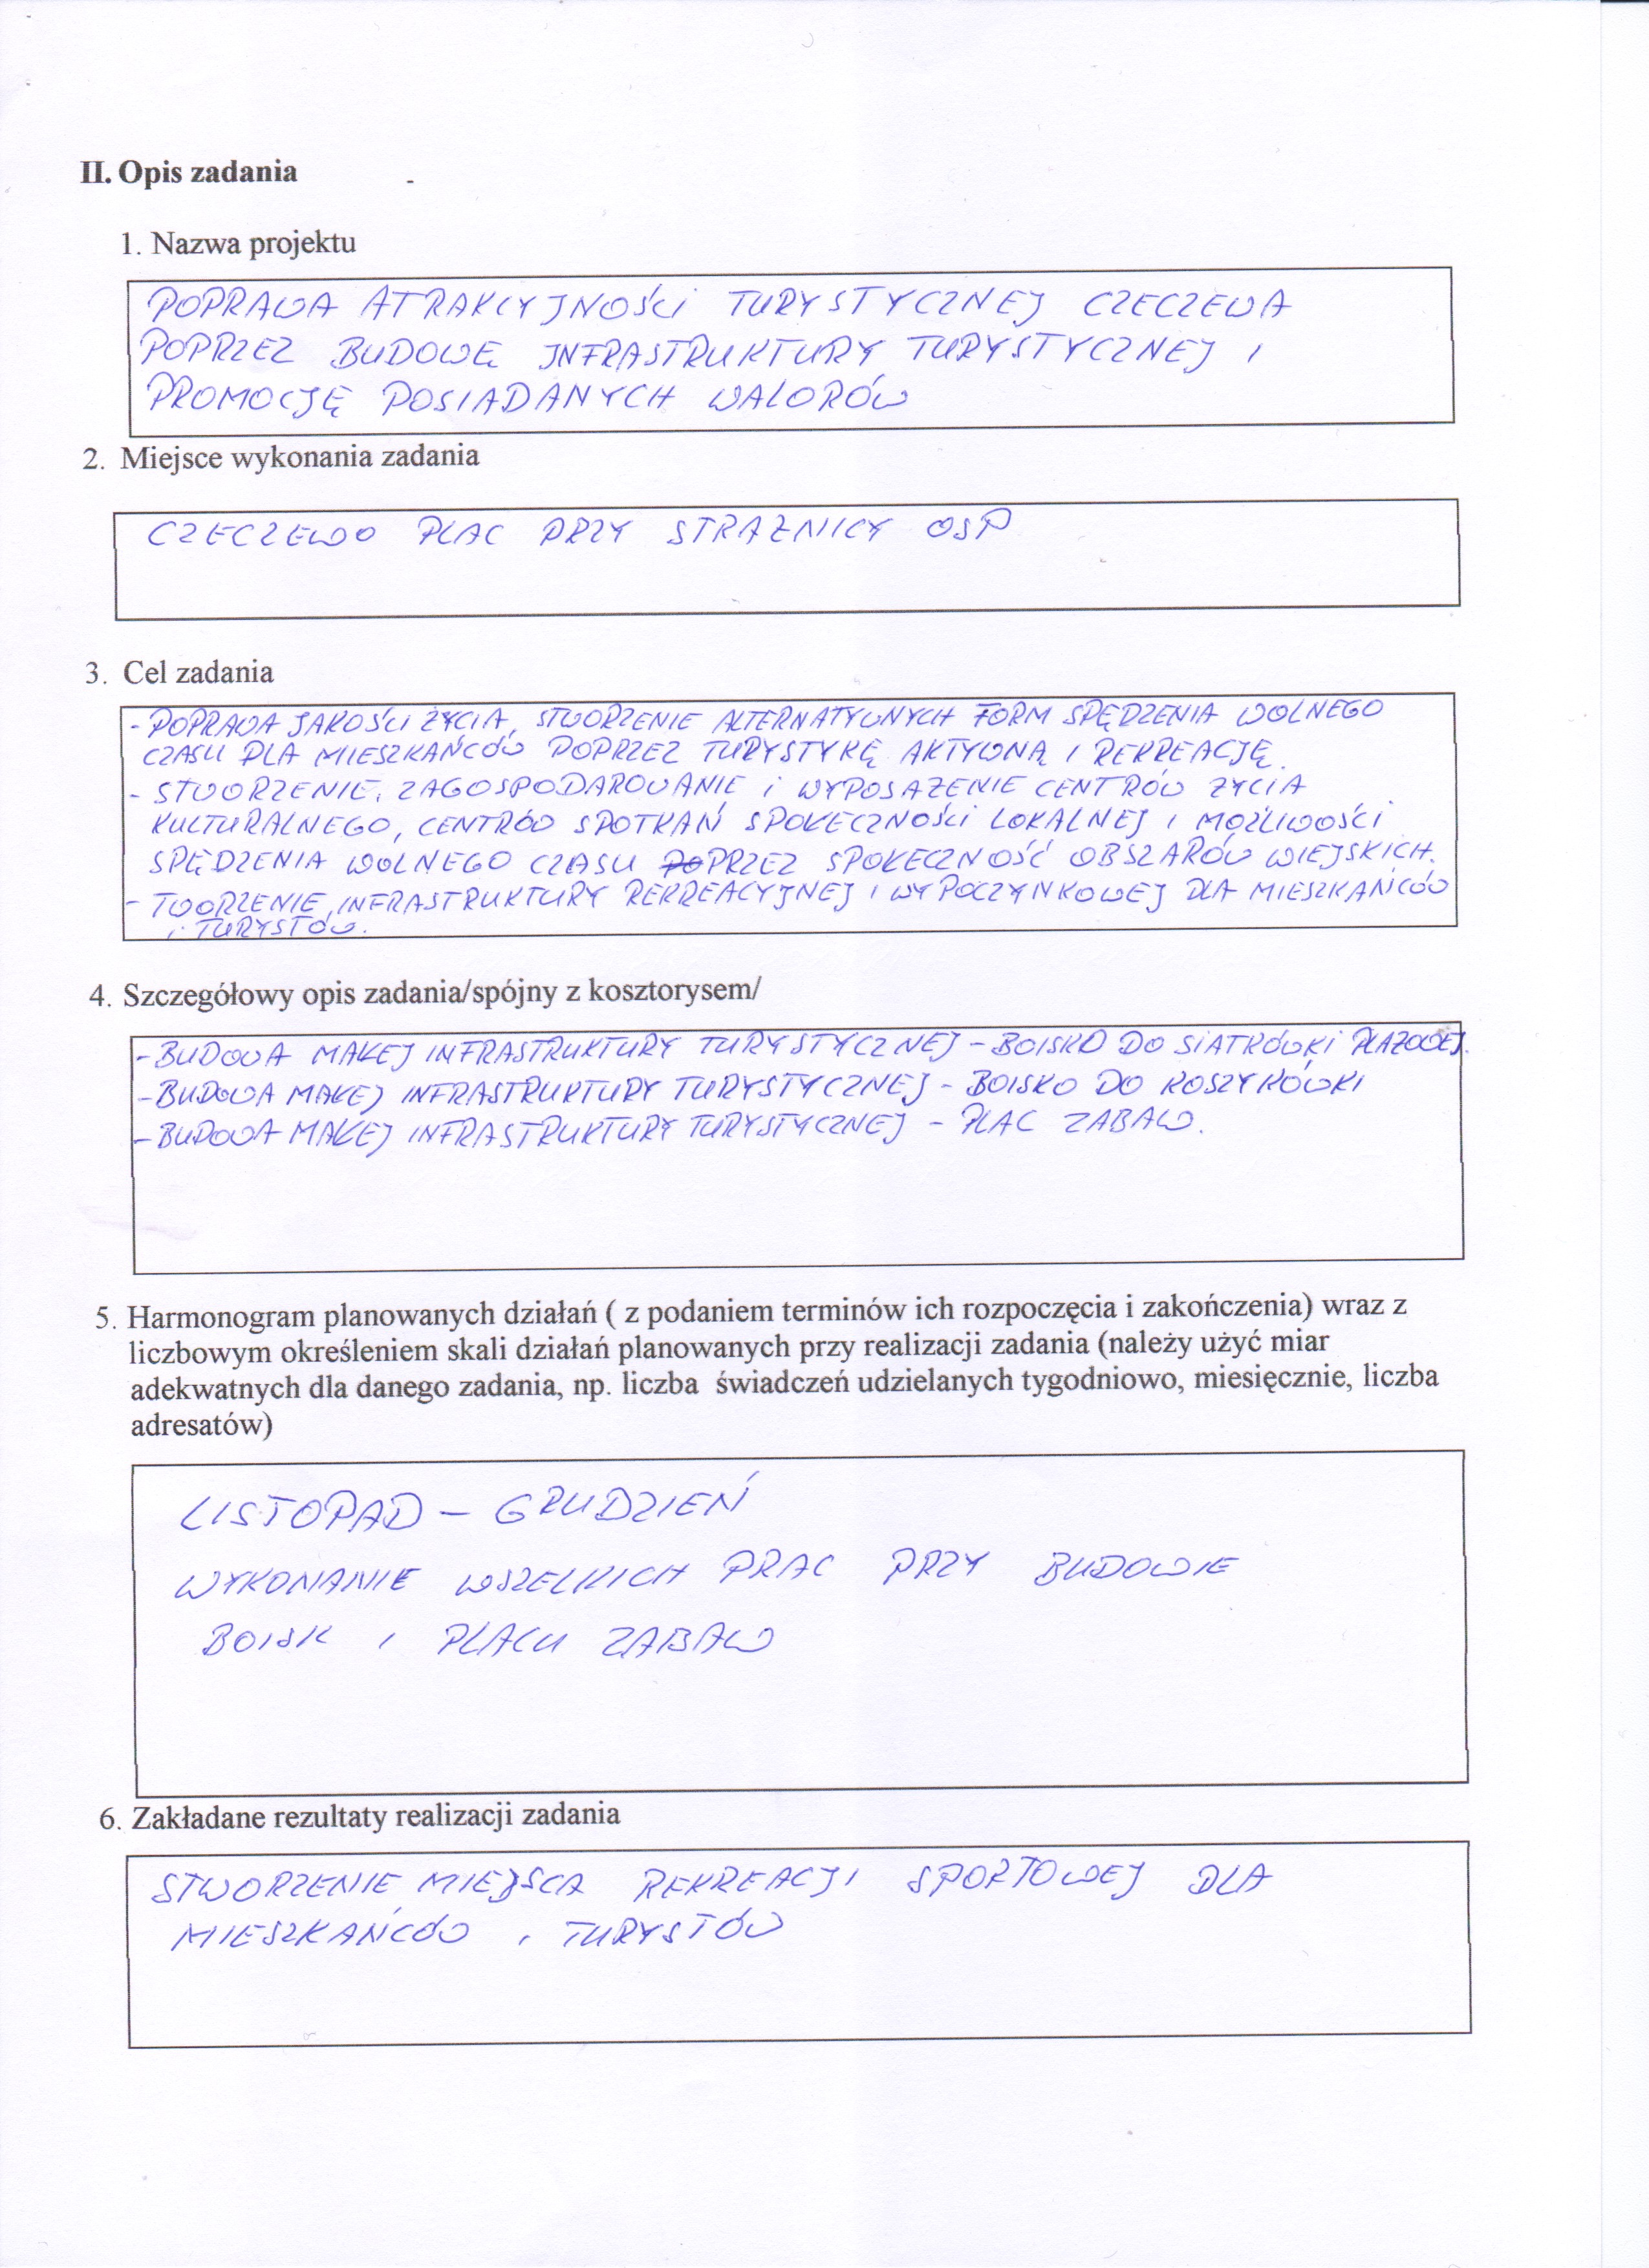 II. Opis zadania
1. Nazwa projektu
POPRAWA ATRAKCYJNOŚCI TURYSTYCZNEJ CZECZEWA
POPRZEZ BUDOWĘ INFRASTRUKTURY TURYSTYCZNEJ I
PROMOCJĘ POSIADANYCH WALORÓW
2. Miejsce wykonania zadania
CZECZEWO PLAC PRZY STRAŻNICY OSP
3. Cel zadania
- POPRAWA JAKOŚCI ŻYCIA, STWORZENIE ALTERNATYWNYCH FORM SPĘDZENIA WOLNEGO
CZASU DLA MIESZKAŃCÓW POPRZEZ TURYSTYKĘ AKTYWNĄ I REKREACJĘ.
- STWORZENIE, ZAGOSPODAROWANIE I WYPOSAŻENIE CENTRÓW ŻYCIA
KULTURALNEGO, CENTRÓW SPOTKAŃ SPOŁECZNOŚCI LOKALNEJ I MOŻLIWOŚCI
SPĘDZENIA WOLNEGO CZASU POPRZEZ SPOŁECZNOŚĆ OBSZARÓW WIEJSKICH.
- TWORZENIE INFRASTRUKTURY REKREACYJNEJ I WYPOCZYNKOWEJ DLA MIESZKAŃCÓW
I TURYSTÓW.
4. Szczegółowy opis zadania/spójny z kosztorysem/
- BUDOWA MAŁEJ INFRASTRUKTURY TURYSTYCZNEJ - BOISKO DO SIATKÓWKI PLAŻOWEJ.
- BUDOWA MAŁEJ INFRASTRUKTURY TURYSTYCZNEJ - BOISKO DO KOSZYKÓWKI
- BUDOWA MAŁEJ INFRASTRUKTURY TURYSTYCZNEJ - PLAC ZABAW.
5. Harmonogram planowanych działań ( z podaniem terminów ich rozpoczęcia i zakończenia) wraz z
liczbowym określeniem skali działań planowanych przy realizacji zadania (należy użyć miar
adekwatnych dla danego zadania, np. liczba świadczeń udzielanych tygodniowo, miesięcznie, liczba
adresatów)
LISTOPAD - GRUDZIEŃ
WYKONANIE WSZELKICH PRAC PRZY BUDOWIE
BOISK I PLACU ZABAW
6. Zakładane rezultaty realizacji zadania
STWORZENIE MIEJSCA REKREACJI SPORTOWEJ DLA
MIESZKAŃCÓW I TURYSTÓW